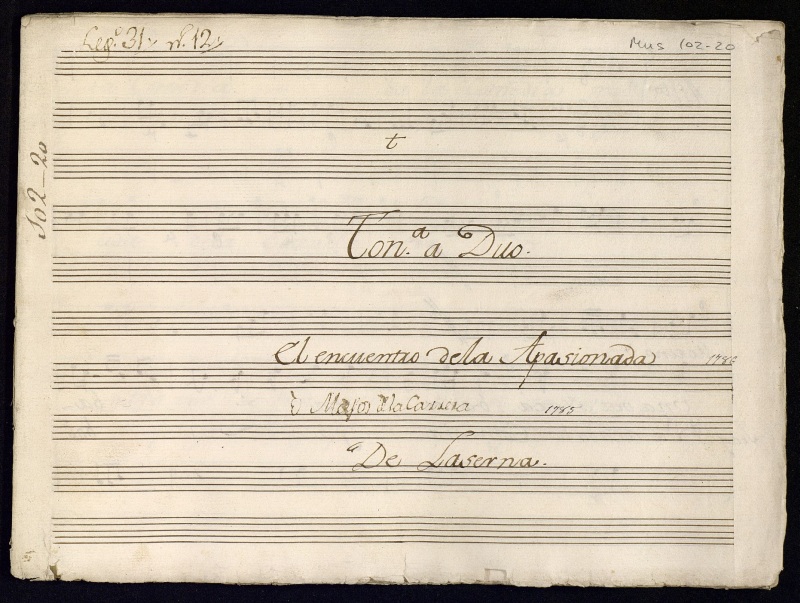 Leg.º 31, n.º 12,
Mus 102-20
102-20
t
Ton.ª a Duo.
El encuentro dela Apasionada 1786
ò Majos dla Carrera 1785
De Laserna.